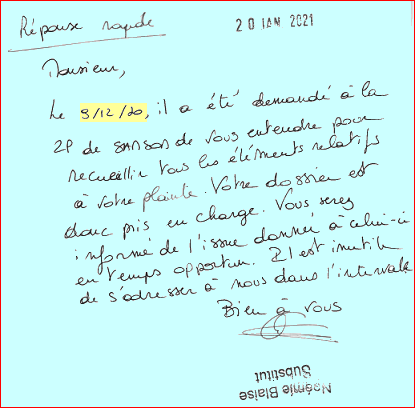 Réponse rapide
20 JAN 2021
Monsieur,
Le 9/12/20, il a été demandé à la
ZP de SAMSON de vous entendre pour
recueillir tous les éléments relatifs
à votre plainte. Votre dossier est
donc pris en charge. Vous serez
informé de l'issue donnée à celui-ci
en temps opportun. Il est inutile
de s'adresser à nous dans l'intervalle
Bien à vous
Noémie Blaise
Substitut